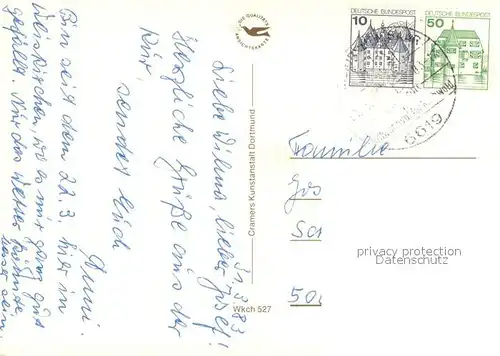 31.3.83
Liebe Wilma, lieber Josef!
Herzliche Grüße aus der
Kur, sendet Euch
Anni.
Bin seit dem 22.3. hier in
Weiskirchen, wo es mir ganz gut
gefällt. Nur das Wetter könnte
besser sein.
DIE QUALITÄTS
ANSICHTSKARTE
Cramers Kunstanstalt Dortmund
Wkch 527
10
DEUTSCHE BUNDESPOST
50
DEUTSCHE BUNDESPOST
6619
Familie
Jos
50
privacy protection
Datenschutz